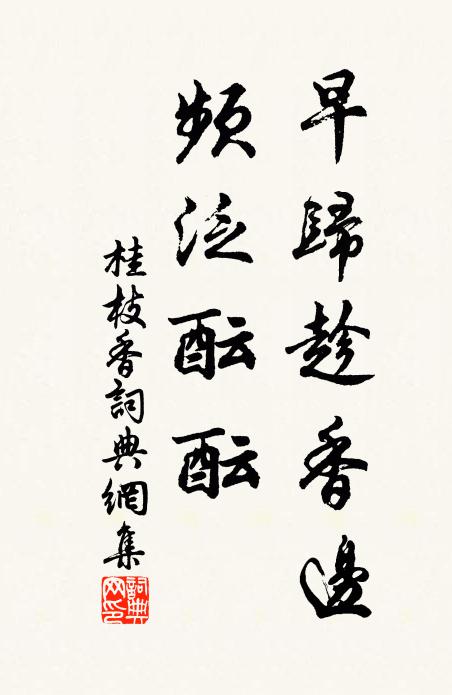 早歸趁香邊
頻泛酝酝
桂枝香詞典網集
詞典网印